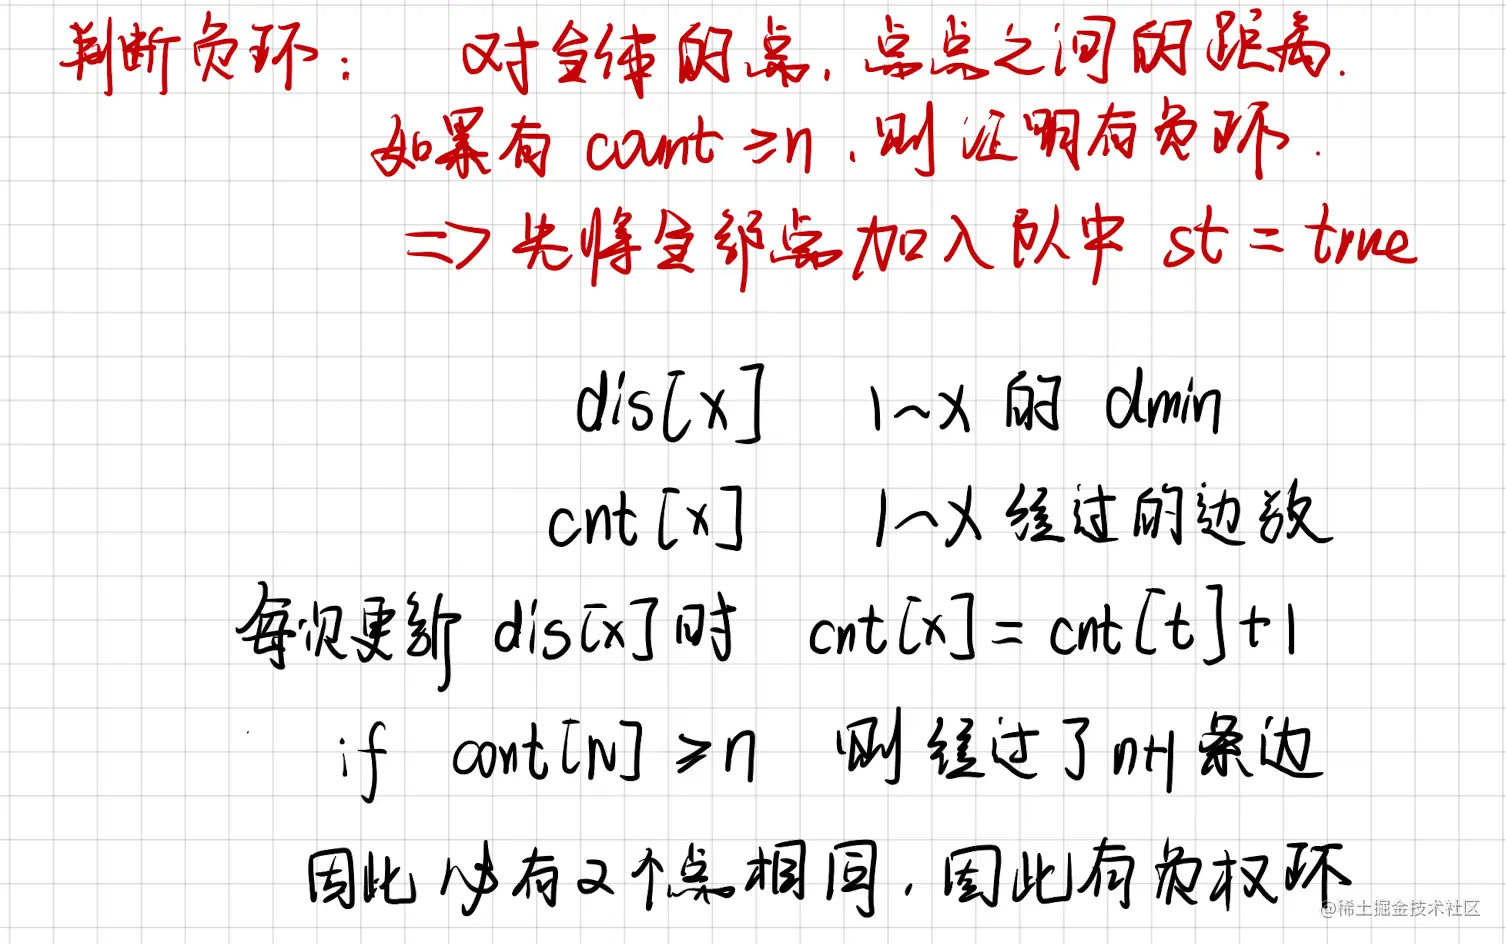 判断负环： 对全体的点，点点之间的距离.
如果有 count ≥n，则证明有负环.
=> 先将全部点加入队中 st = true
dis[x] 1~x 的 dmin
cnt[x] 1~x 经过的边数
每次更新 dis[x]时 cnt[x] = cnt[t]+1
if cont[N] ≥n 则经过了n+1条边
因此必有2个点相同，因此有负权环
@稀土掘金技术社区